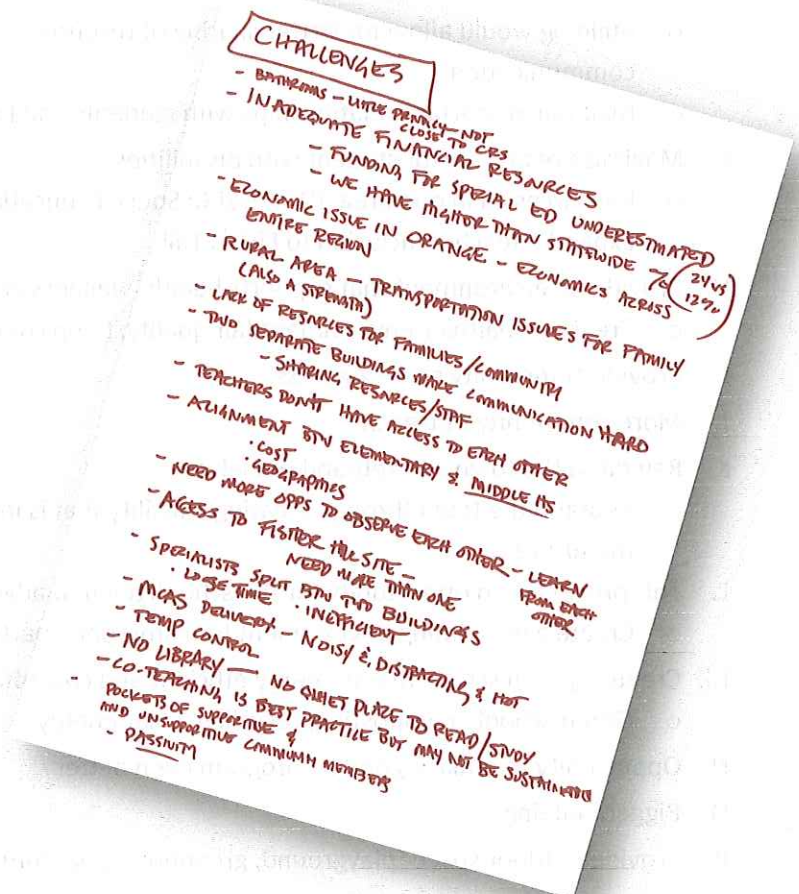 CHALLENGES
- BATHROOMS - LITTLE PRIVACY - NOT
CLOSE TO CRS
- INADEQUATE FINANCIAL RESOURCES
- FUNDING FOR SPECIAL ED UNDERESTIMATED
- WE HAVE HIGHER THAN STATEWIDE % (24 vs 12%)
- ECONOMIC ISSUE IN ORANGE - ECONOMICS ACROSS
ENTIRE REGION
- RURAL AREA - TRANSPORTATION ISSUES FOR FAMILY
(ALSO A STRENGTH)
- LACK OF RESOURCES FOR FAMILIES/COMMUNITY
- TWO SEPARATE BUILDINGS MAKE COMMUNICATION HARD
- SHARING RESOURCES/STAFF
- TEACHERS DON'T HAVE ACCESS TO EACH OTHER
- ALIGNMENT BTN ELEMENTARY & MIDDLE HS
· COST
· GEOGRAPHICS
- NEED MORE OPPS TO OBSERVE EACH OTHER - LEARN
FROM EACH
OTHER
- ACCESS TO FISHER HILL SITE -
NEED MORE THAN ONE
- SPECIALISTS SPLIT BTN TWO BUILDINGS
· LOSE TIME · INEFFICIENT
- MCAS DELIVERY - NOISY &, DISTRACTING, & HOT
- TEMP CONTROL
- NO LIBRARY - NO QUIET PLACE TO READ/STUDY
- CO-TEACHING IS BEST PRACTICE BUT MAY NOT BE SUSTAINABLE
POCKETS OF SUPPORTIVE &
AND UNSUPPORTIVE COMMUNITY MEMBERS
- PASSIVITY